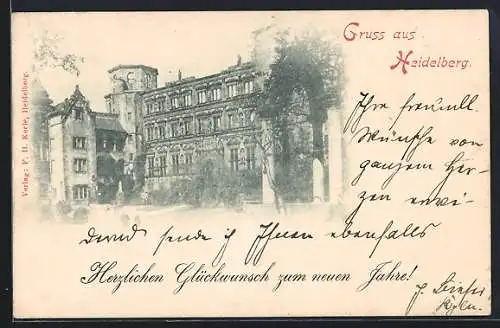 Gruss aus
Heidelberg.
Verlag: P. H. Korle, Heidelberg.
Ihre freundl.
Wünsche von
ganzem Her-
zen erwi-
dernd sende ich Ihnen ebenfalls
Herzlichen Glückwunsch zum neuen Jahre!